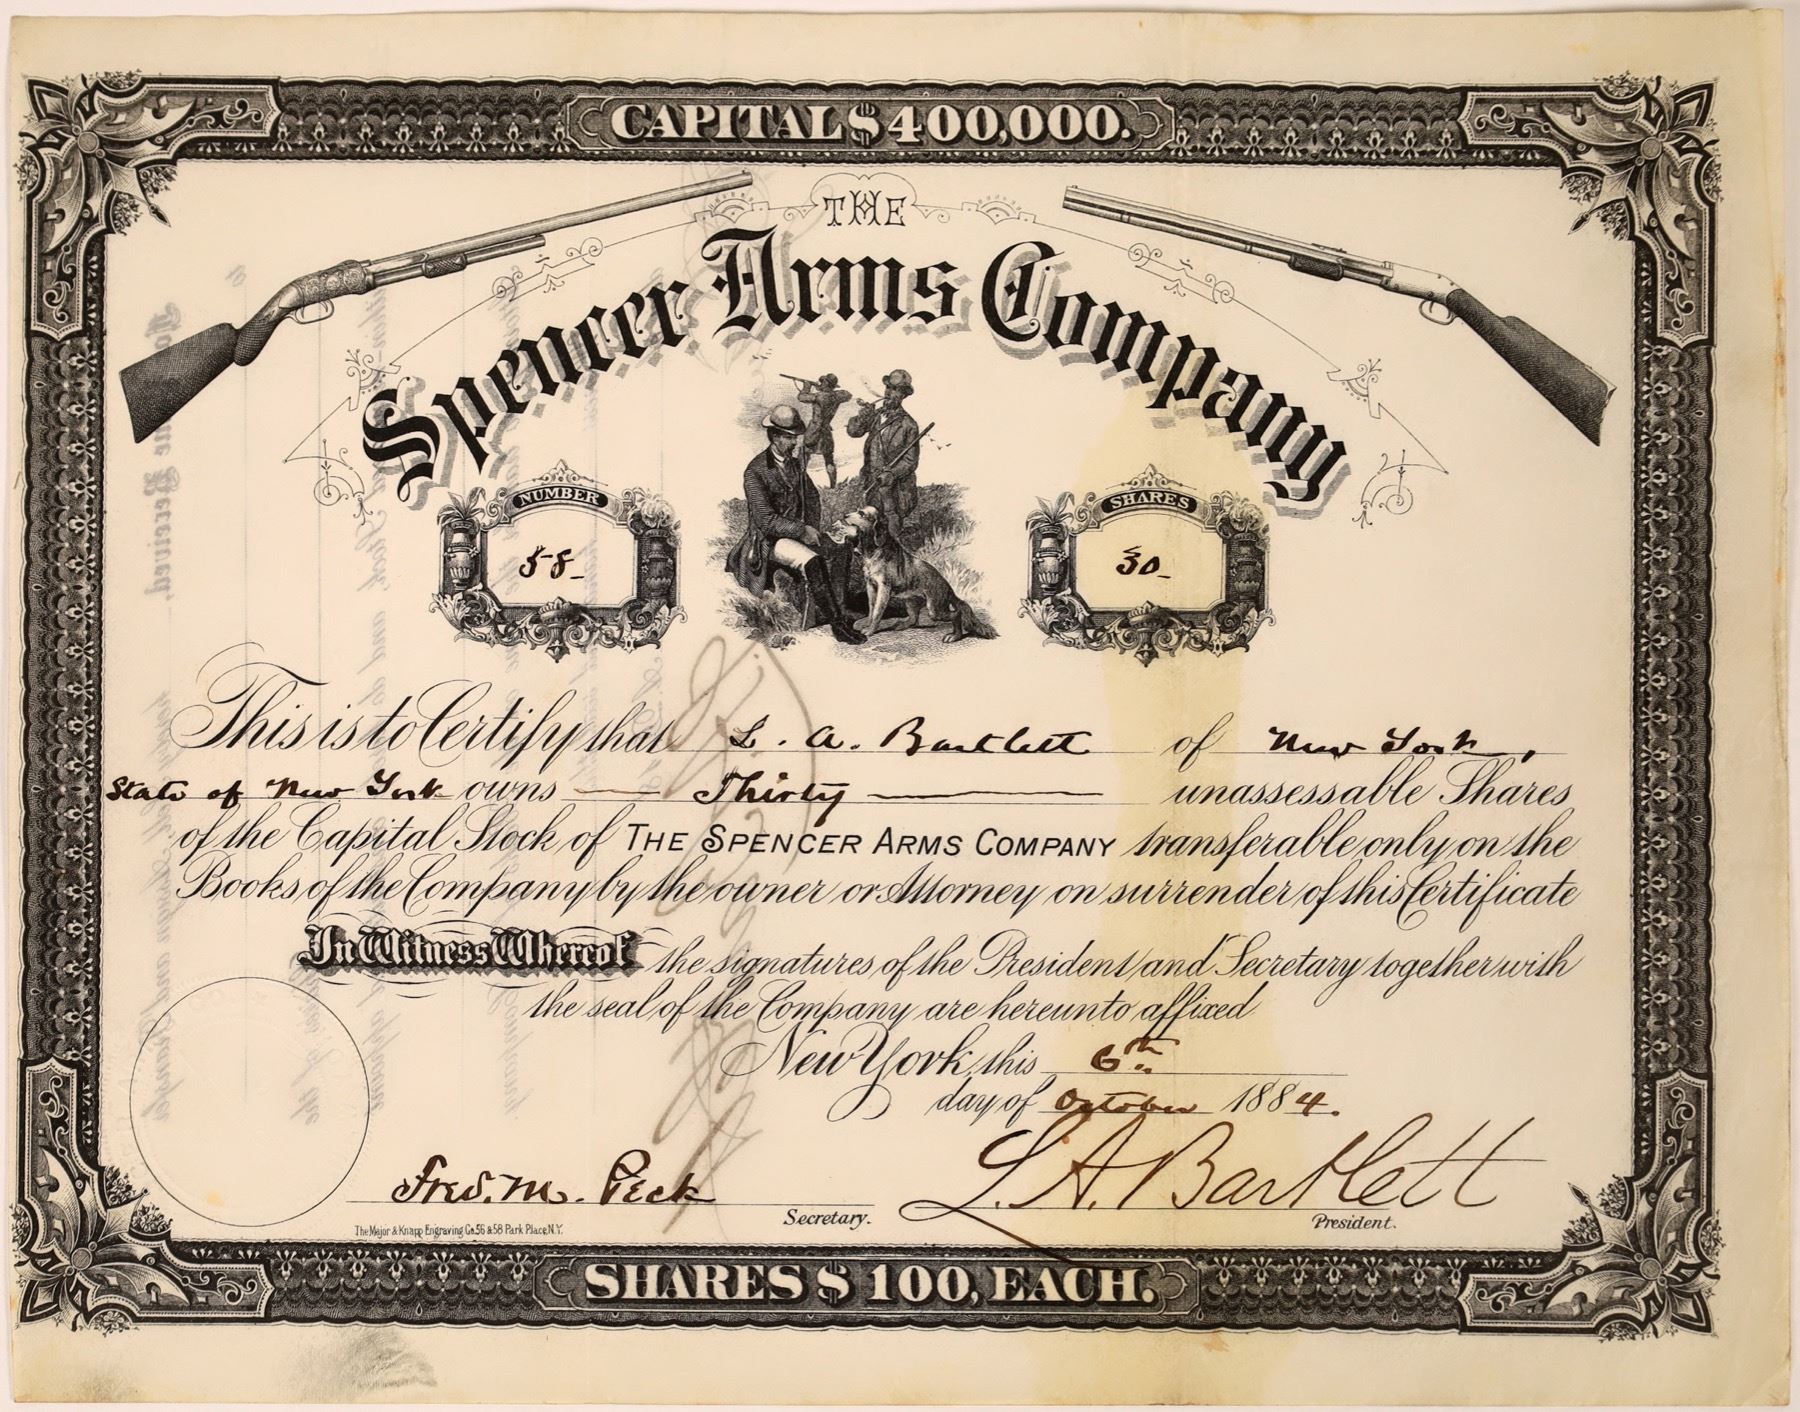 CAPITAL $400,000.
THE
Spencer Arms Company
NUMBER
58
SHARES
30
This is to Certify that L. A. Bartlett of New York,
State of New York owns Thirty unassessable Shares
of the Capital Stock of THE SPENCER ARMS COMPANY transferable only on the
Books of the Company by the owner or Attorney on surrender of this Certificate
In Witness Whereof the signatures of the President and Secretary together with
the seal of the Company are hereunto affixed
New York, this 6th
day of October 1884.
Fred. M. Peck
L. A. Bartlett
Secretary.
President.
The Major & Knapp Engraving Co. 56 & 58 Park Place, N.Y.
SHARES $100, EACH.